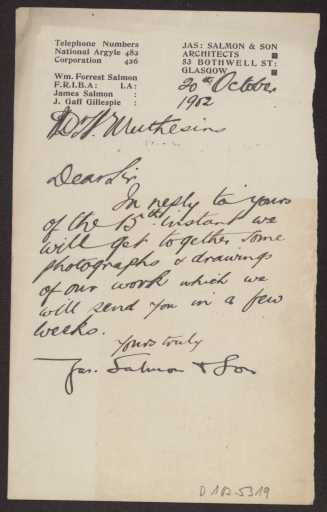 Telephone Numbers
National Argyle 482
Corporation 426
Wm. Forrest Salmon
F.R.I.B.A: LA:
James Salmon :
J. Gaff Gillespie :
JAS: SALMON & SON
ARCHITECTS
53 BOTHWELL ST:
GLASGOW
20th October
1902
Muthesius
Dear Sir
In reply to yours
of the 15th instant we
will get together some
photographs & drawings
of our work which we
will send you in a few
weeks.
Yours truly
Jas. Salmon & Son
D 102-5319